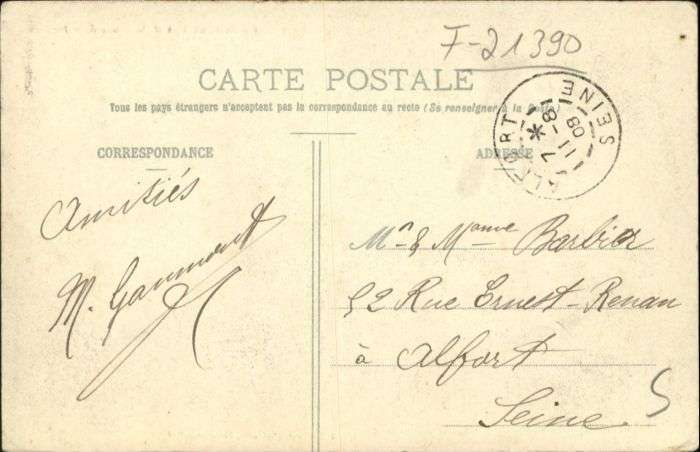 F-21390
CARTE POSTALE
Tous les pays étrangers n'acceptent pas la correspondance au recto (Se renseigner à la Poste)
CORRESPONDANCE
ADRESSE
ALFORT SEINE
8-*
11 7
08
Amitiés
M. Gaumont
Mr & Mame Barbier
52 Rue Ernest-Renan
à Alfort
Seine.
5